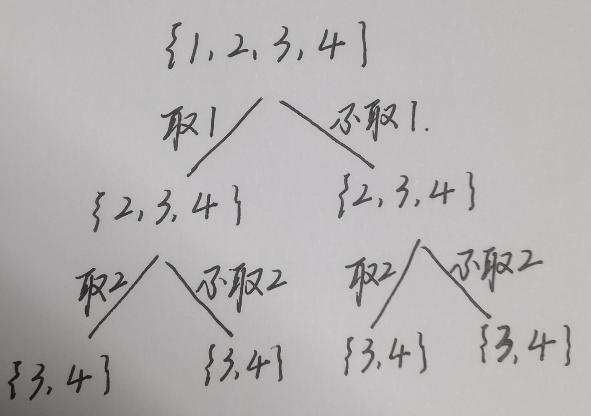 {1,2,3,4}
取1 不取1.
{2,3,4} {2,3,4}
取2 不取2 取2 不取2
{3,4} {3,4} {3,4} {3,4}